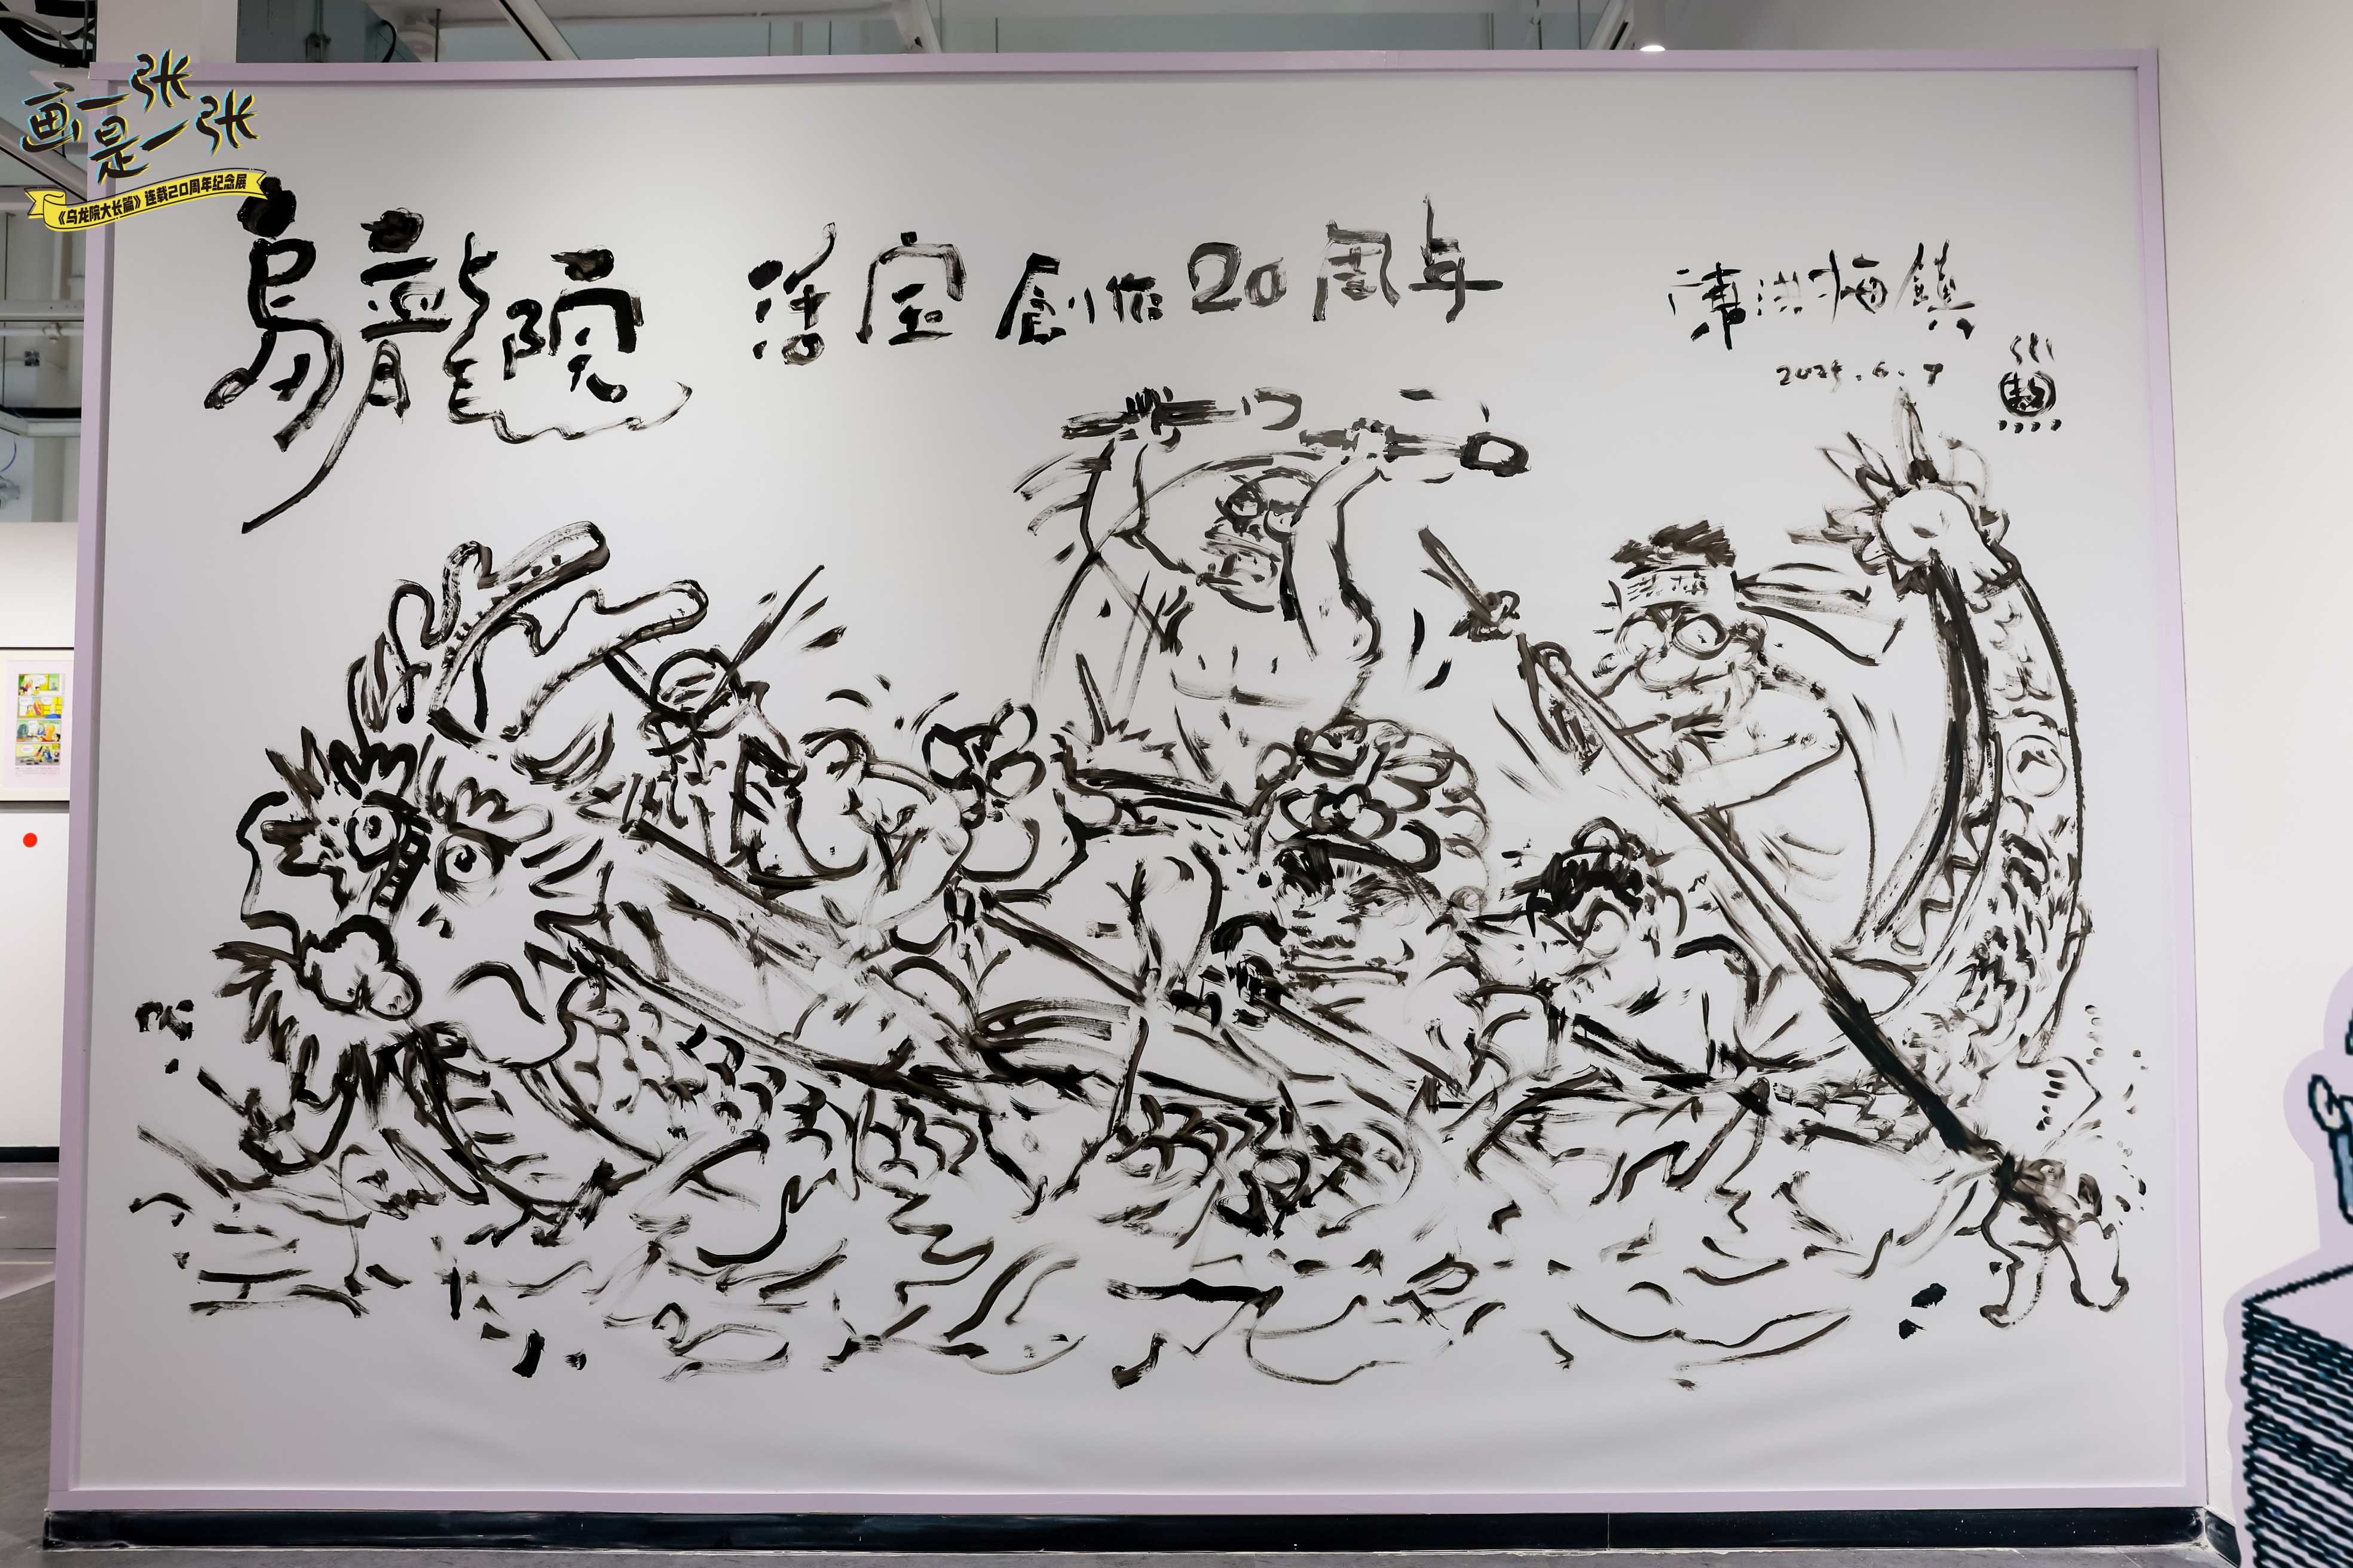 画一张
是一张
《乌龙院大长篇》连载20周年纪念展
烏龍院 活宝創作20周年
洪梅鎮
2025.6.7
敖
洪梅